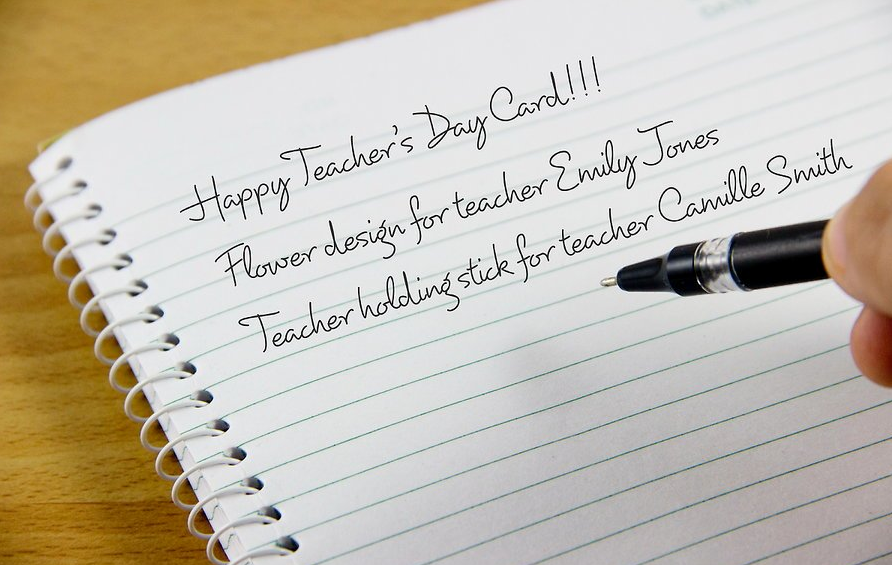 Happy Teacher's Day Card!!!
Flower design for teacher Emily Jones
Teacher holding stick for teacher Camille Smith